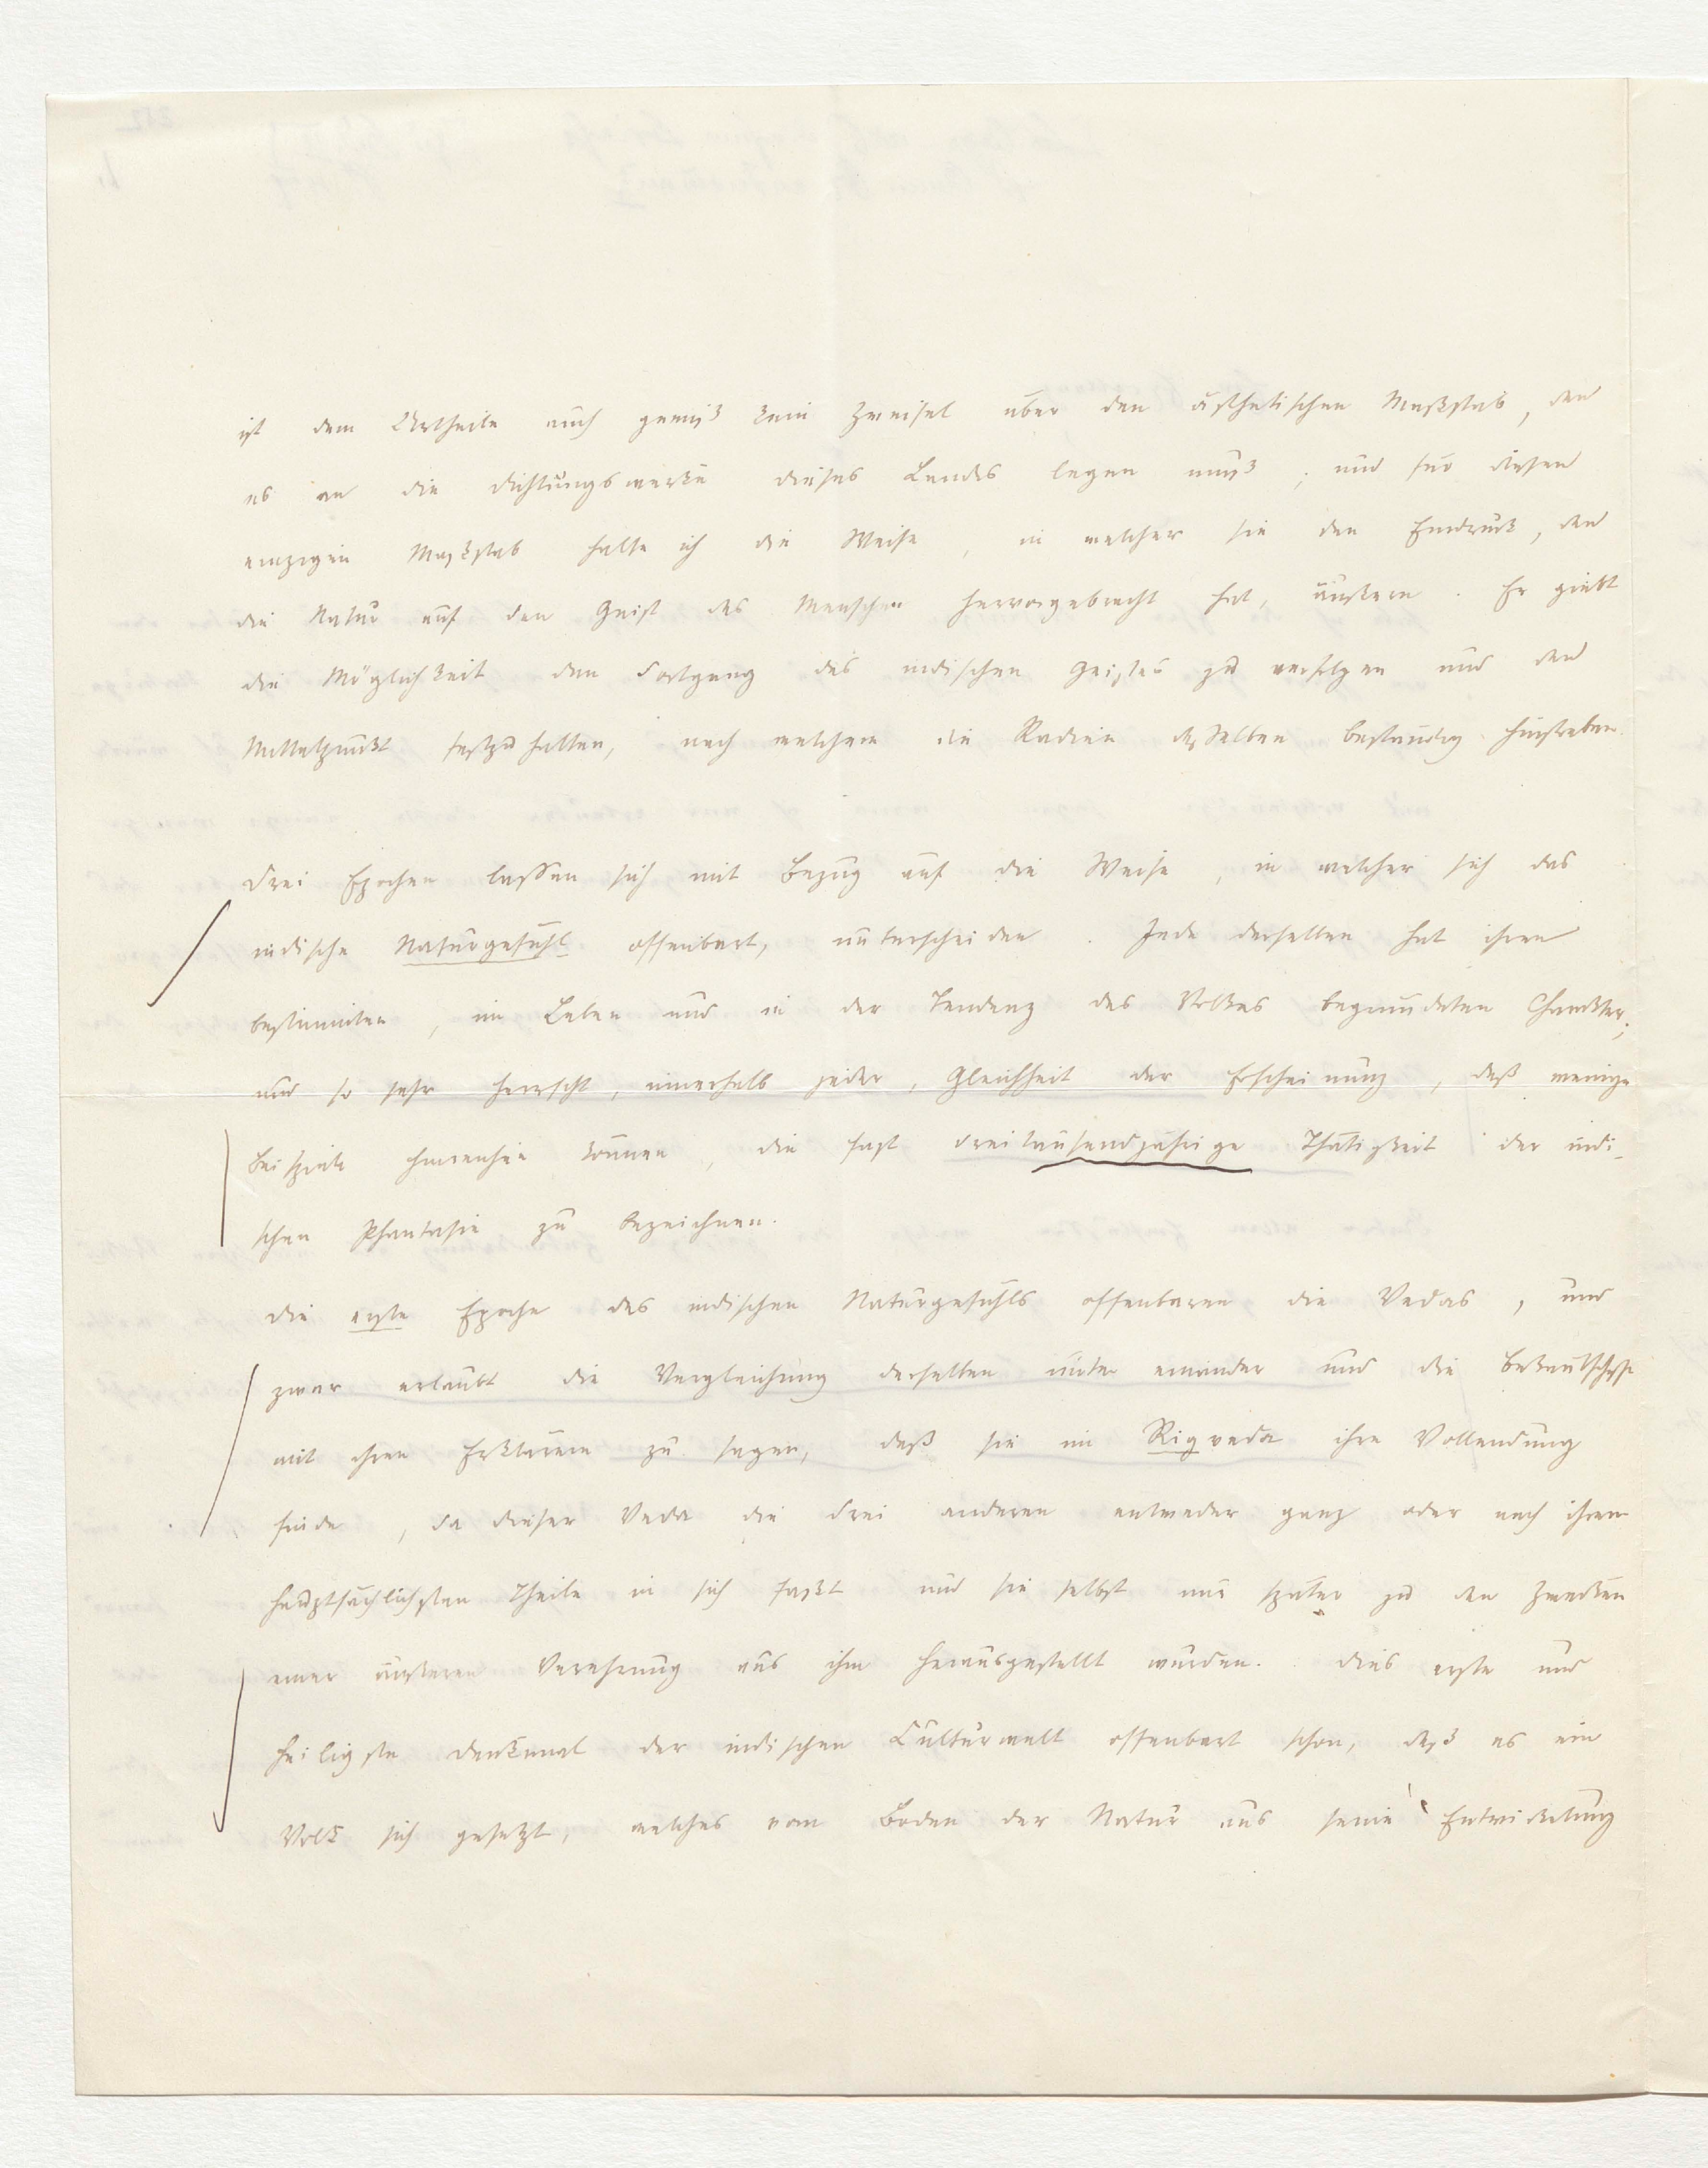 ist dem Urtheile auch gewiß kein Zweifel über den ästhetischen Maßstab, den
es an die Dichtungswerke dieses Landes legen muß; und für diesen
einzigen Maßstab halte ich die Weise, in welcher sie den Eindruck, den
die Natur auf den Geist des Menschen hervorgebracht hat, äußern. Er giebt
die Möglichkeit den Fortgang des indischen Geistes zu verfolgen und den
Mittelpunkt festzuhalten, nach welchem die Radien desselben beständig hinstreben.
Drei Epochen lassen sich mit Bezug auf die Weise, in welcher sich das
indische Naturgefühl offenbart, unterscheiden. Jede derselben hat ihren
bestimmten, im Leben und in der Tendenz des Volkes begründeten Charakter;
und so sehr herrscht, innerhalb jeder, Gleichheit der Erscheinung, daß wenige
Beispiele hinreichen können, die fast dreitausendjährige Thätigkeit der indi-
schen Phantasie zu bezeichnen.
Die erste Epoche des indischen Naturgefühls offenbaren die Vedas, und
zwar erlaubt die Vergleichung derselben unter einander und die Bekanntschaft
mit ihren Erklärern zu sagen, daß sie im Rigveda ihre Vollendung
finde, da dieser Veda die drei anderen entweder ganz oder nach ihrem
hauptsächlichsten Theile in sich faßt und sie selbst nur später zu den Zwecken
einer äußeren Verehrung aus ihm herausgestellt wurden. Dies erste und
heiligste Denkmal der indischen Culturwelt offenbart schon, daß es ein
Volk sich gesetzt, welches vom Boden der Natur aus seine Entwickelung